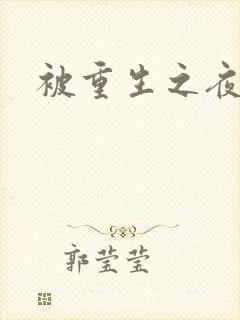 被重生之夜
郭莹莹